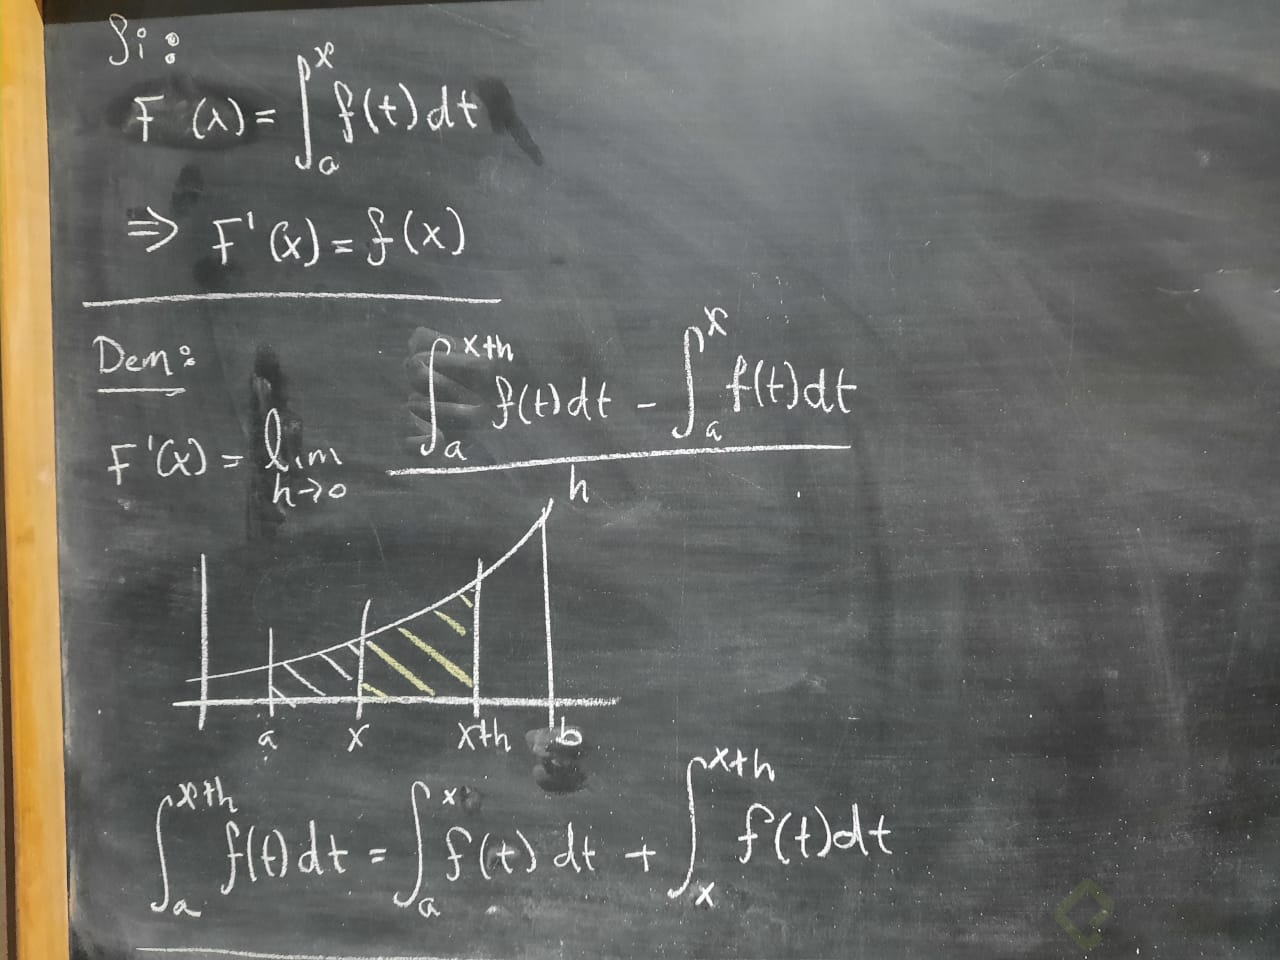 Si:
F (x) = ∫_a^x f(t) dt
⇒ F'(x) = f(x)
Dem:
F'(x) = lim_{h→0} (∫_a^{x+h} f(t) dt - ∫_a^x f(t) dt) / h
a x x+h b
∫_a^{x+h} f(t) dt = ∫_a^x f(t) dt + ∫_x^{x+h} f(t) dt